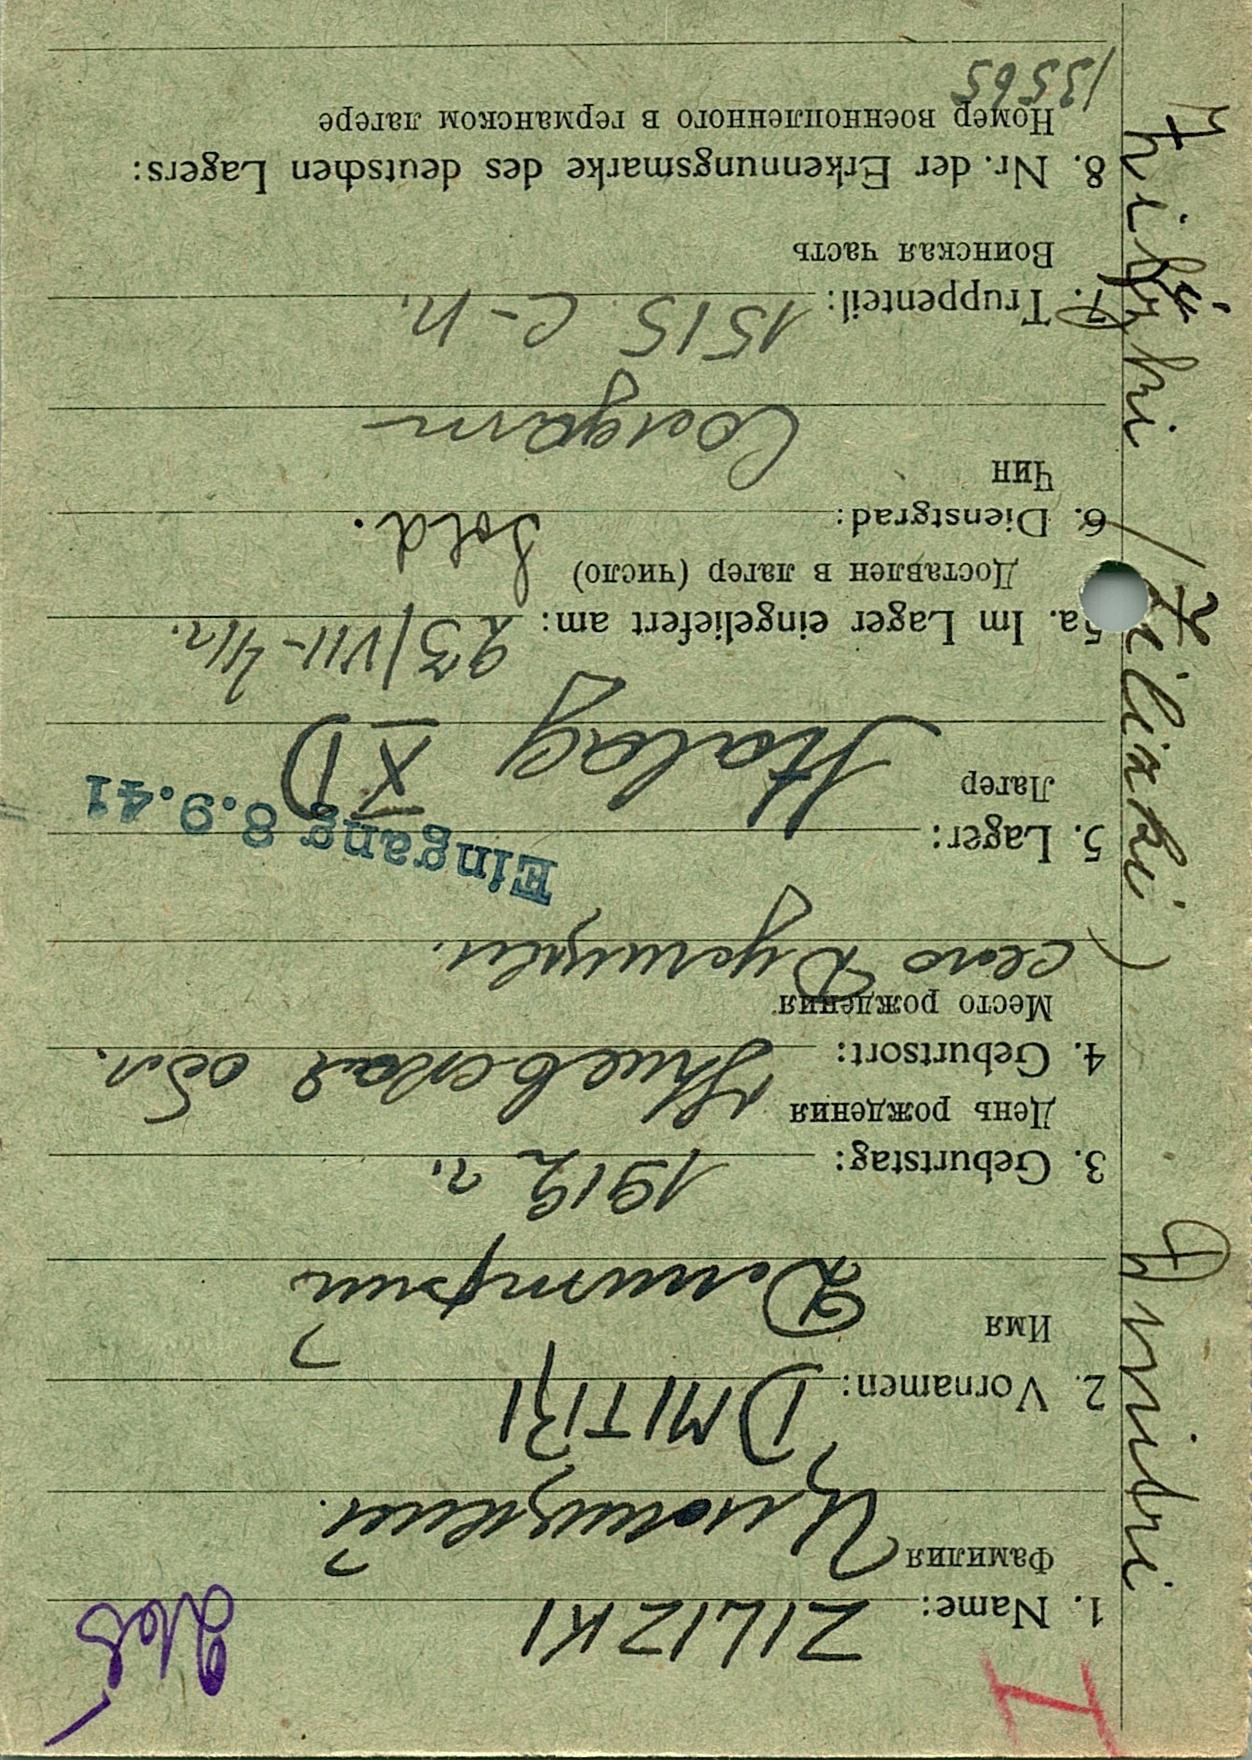 I
1. Name: ZILIZKI
Фамилия
2. Vornamen: DMITRI
Имя Дмитрий
3. Geburtstag: 1912 г.
День рождения
4. Geburtsort: Киевская обл.
Место рождения
село
5. Lager: Stalag XD
Лагерь
Eingang 8.9.41
5a. Im Lager eingeliefert am: 23/VII-41г.
Доставлен в лагерь (число)
6. Dienstgrad: Sold.
Чин
Солдат
7. Truppenteil: 1515 с-п.
Воинская часть
8. Nr. der Erkennungsmarke des deutschen Lagers:
Номер военнопленного в германском лагере
13565
Dmitri (Zilizki)